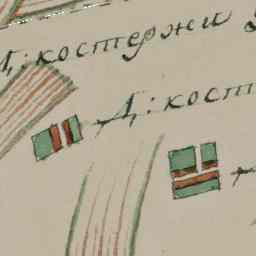 Д: костержи
Д: кост